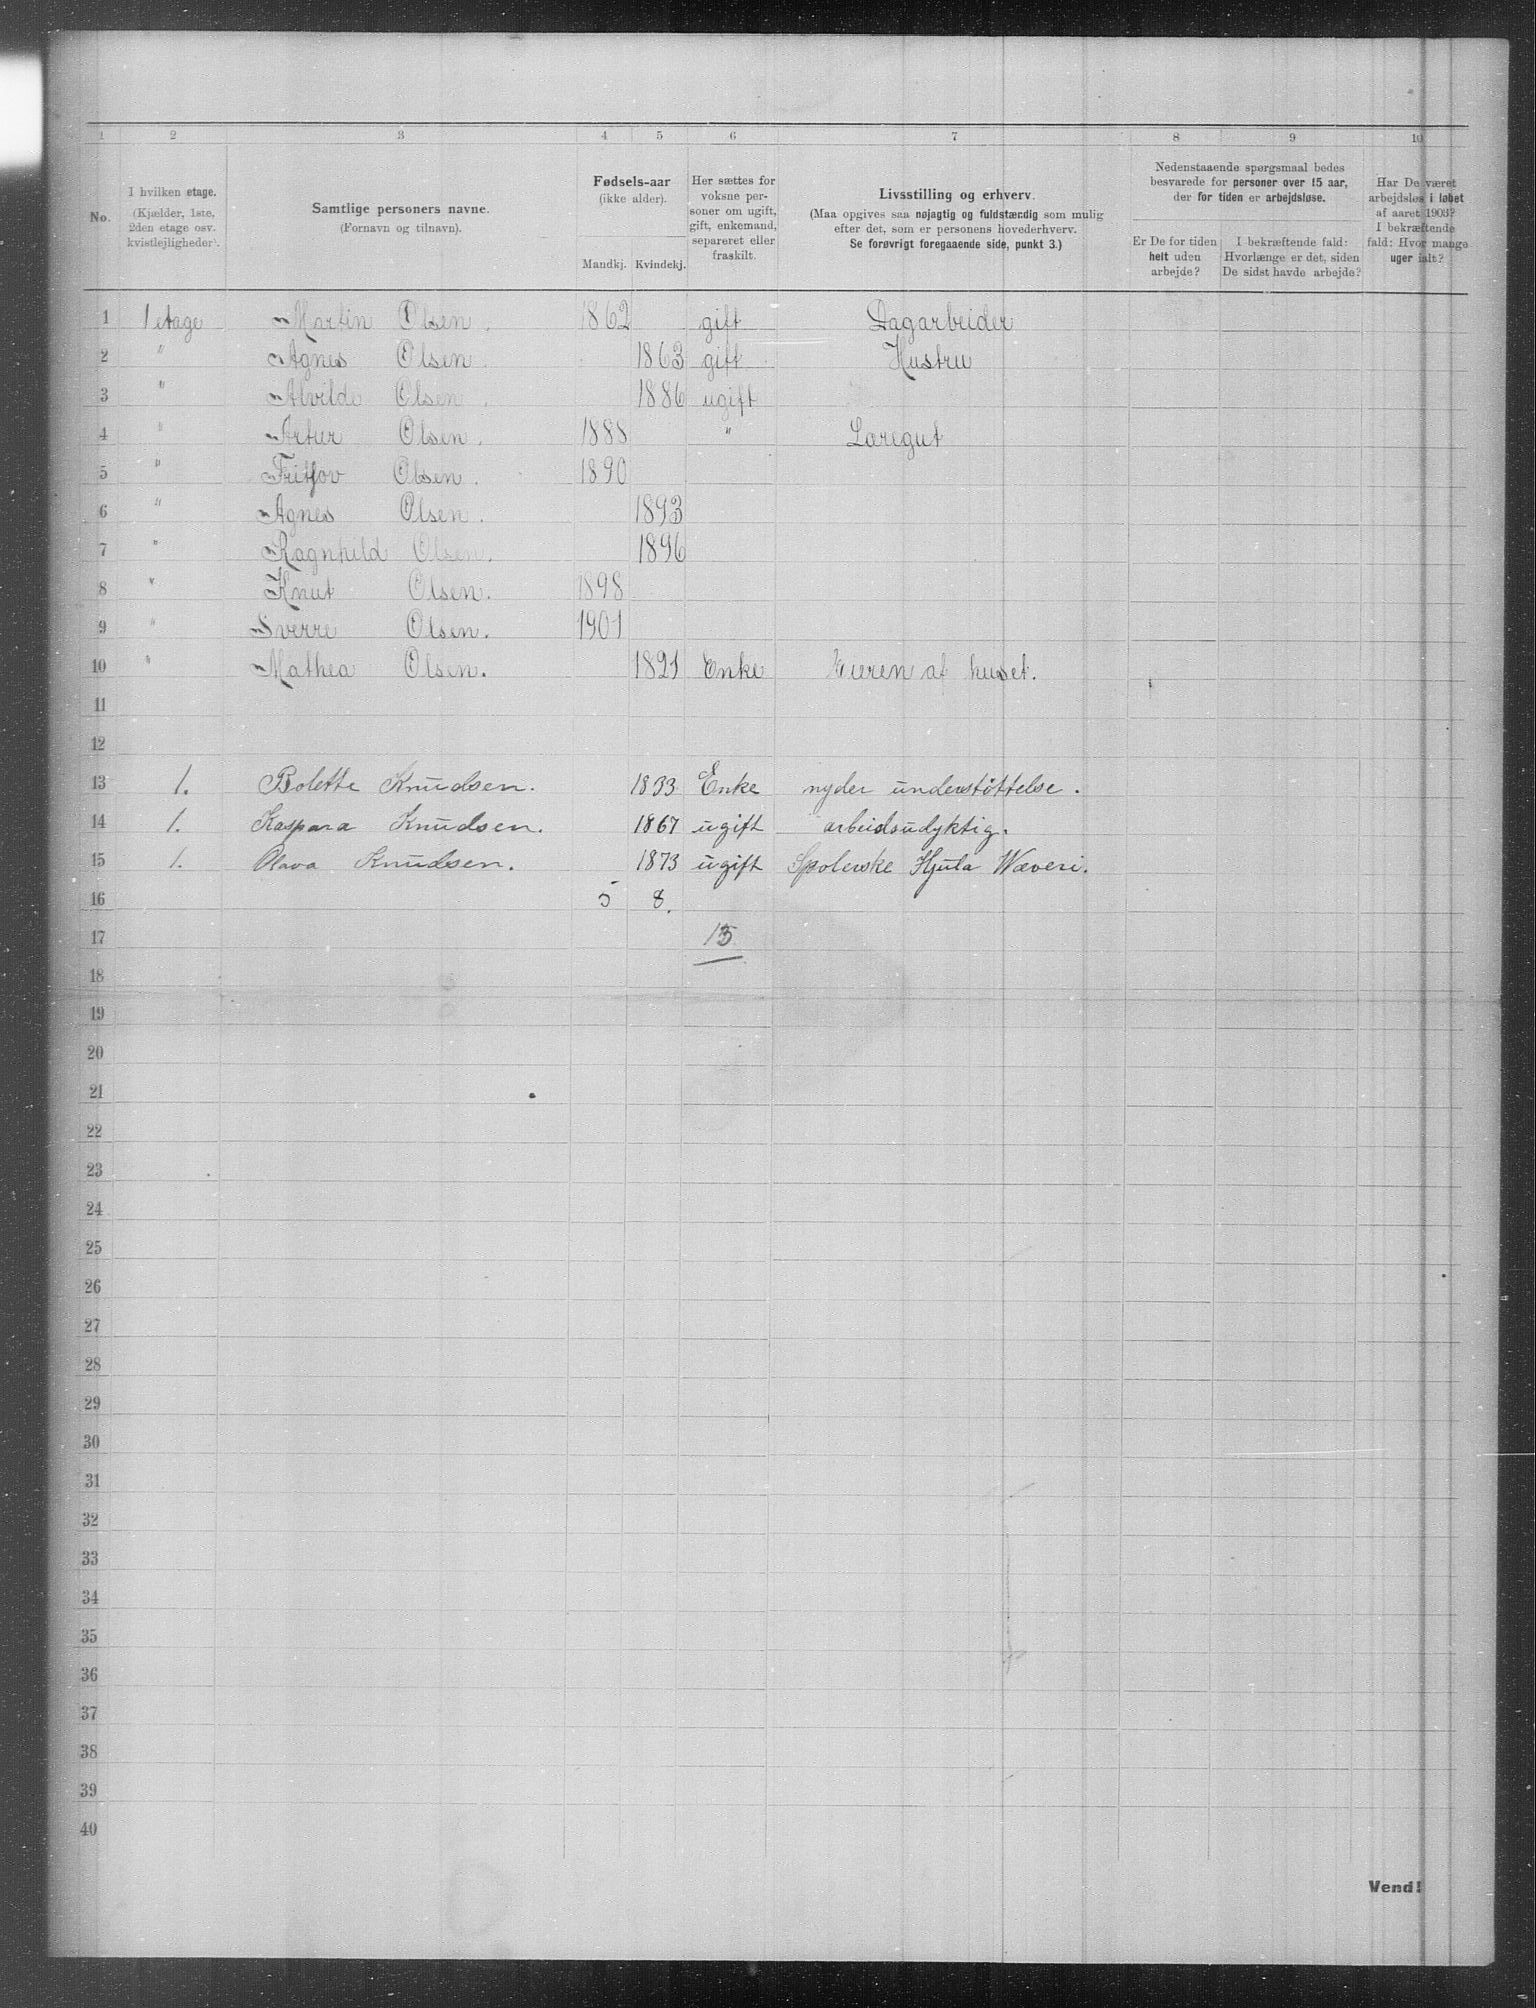 1 2 3 4 5 6 7 8 9 10
No.
I hvilken etage.
(Kjælder, 1ste,
2den etage osv.
kvistlejligheder).
Samtlige personers navne.
(Fornavn og tilnavn).
Fødsels-aar
(ikke alder).
Mandkj. Kvindekj.
Her sættes for
voksne per-
soner om ugift,
gift, enkemand,
separeret eller
fraskilt.
Livsstilling og erhverv.
(Maa opgives saa nøjagtig og fuldstændig som mulig
efter det, som er personens hovederhverv.
Se forøvrigt foregaaende side, punkt 3.)
Nedenstaaende spørgsmaal bedes
besvarede for personer over 15 aar,
der for tiden er arbejdsløse.
Er De for tiden
helt uden
arbejde?
I bekræftende fald:
Hvorlænge er det, siden
De sidst havde arbejde?
Har De været
arbejdsløs i løbet
af aaret 1903?
I bekræftende
fald: Hvor mange
uger ialt?
1 1 etage Martin Olsen. 1862 gift Dagarbeider
2 " Agnes Olsen. 1863 gift Hustru
3 " Alvilde Olsen. 1886 ugift
4 " Artur Olsen. 1888 " Læregut
5 " Fritjov Olsen. 1890
6 " Agnes Olsen. 1893
7 " Ragnhild Olsen. 1896
8 " Knut Olsen. 1898
9 " Sverre Olsen. 1901
10 " Mathea Olsen. 1821 Enke Eieren af huset.
11
12
13 1. Bolette Knudsen. 1833 Enke nyder understøttelse.
14 1. Kaspara Knudsen. 1867 ugift arbeidsudyktig.
15 1. Olava Knudsen. 1873 ugift Spolerske Hjula Wæveri.
16 5 8.
17 13
18
19
20
21
22
23
24
25
26
27
28
29
30
31
32
33
34
35
36
37
38
39
40
Vend!